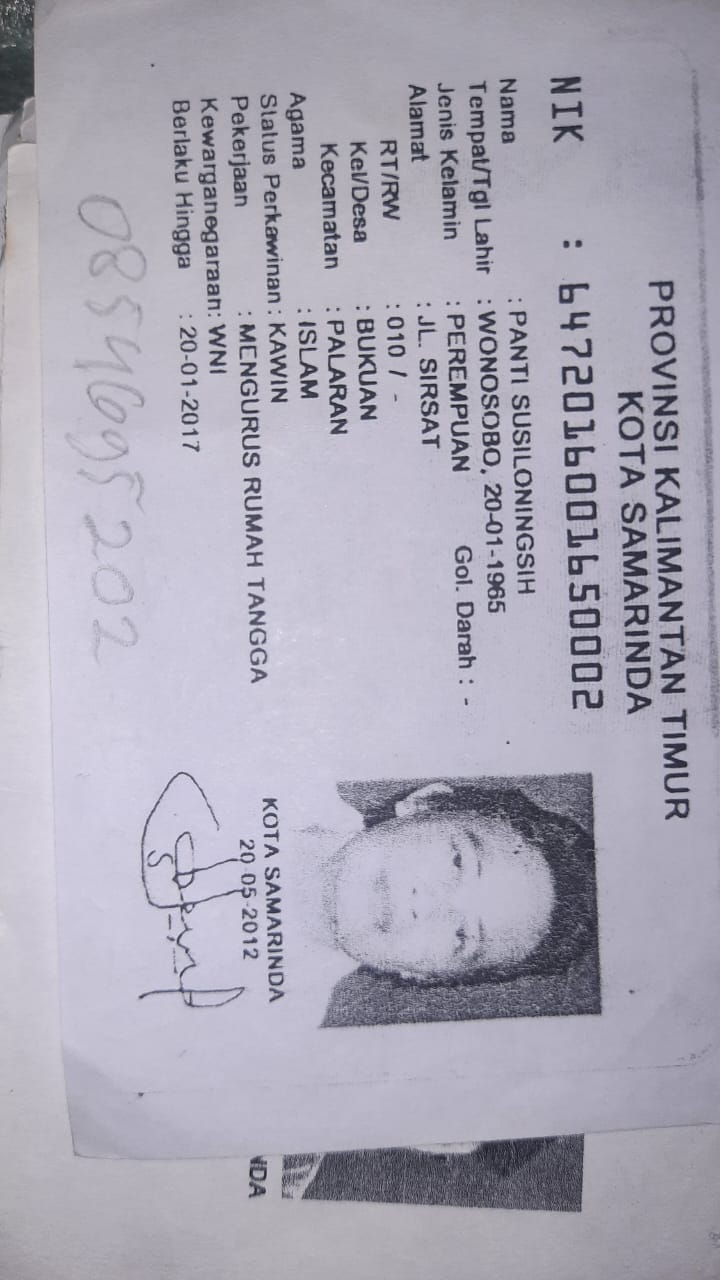 PROVINSI KALIMANTAN TIMUR
KOTA SAMARINDA
NIK : 6472016001650002
Nama : PANTI SUSILONINGSIH
Tempat/Tgl Lahir : WONOSOBO, 20-01-1965
Jenis Kelamin : PEREMPUAN Gol. Darah : -
Alamat : JL. SIRSAT
RT/RW : 010 / -
Kel/Desa : BUKUAN
Kecamatan : PALARAN
Agama : ISLAM
Status Perkawinan : KAWIN
Pekerjaan : MENGURUS RUMAH TANGGA
Kewarganegaraan: WNI
Berlaku Hingga : 20-01-2017
KOTA SAMARINDA
20-05-2012
NDA